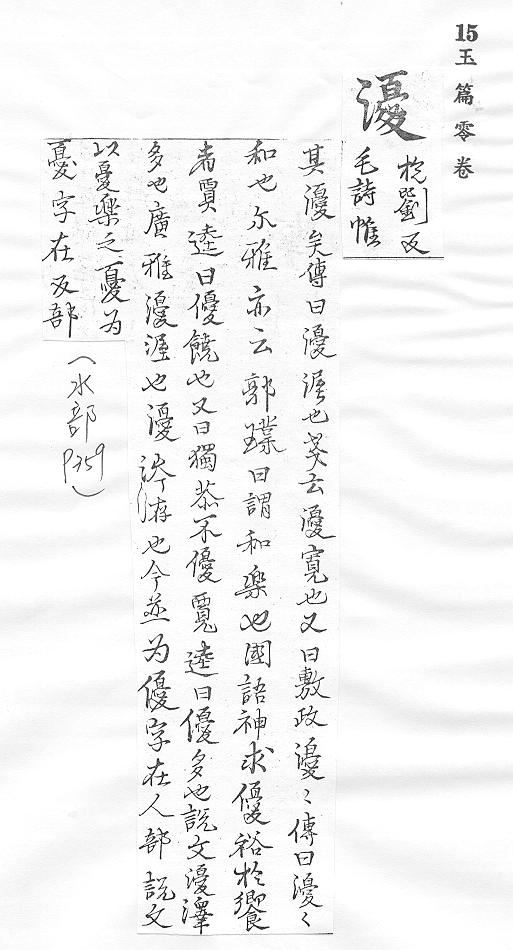 15 玉篇零卷
瀀
於劉反
毛詩惟
其瀀矣傳曰瀀渥也箋云瀀寬也又曰敷政瀀〻傳曰瀀〻
和也尔雅亦云郭璞曰謂和樂也國語神求優裕於饗
者賈逵曰優饒也又曰獨恭不優賈逵曰優多也說文瀀澤
多也廣雅瀀渥也瀀游也今並为優字在人部說文
以憂樂之憂为
憂字在夊部
（水部 P359）